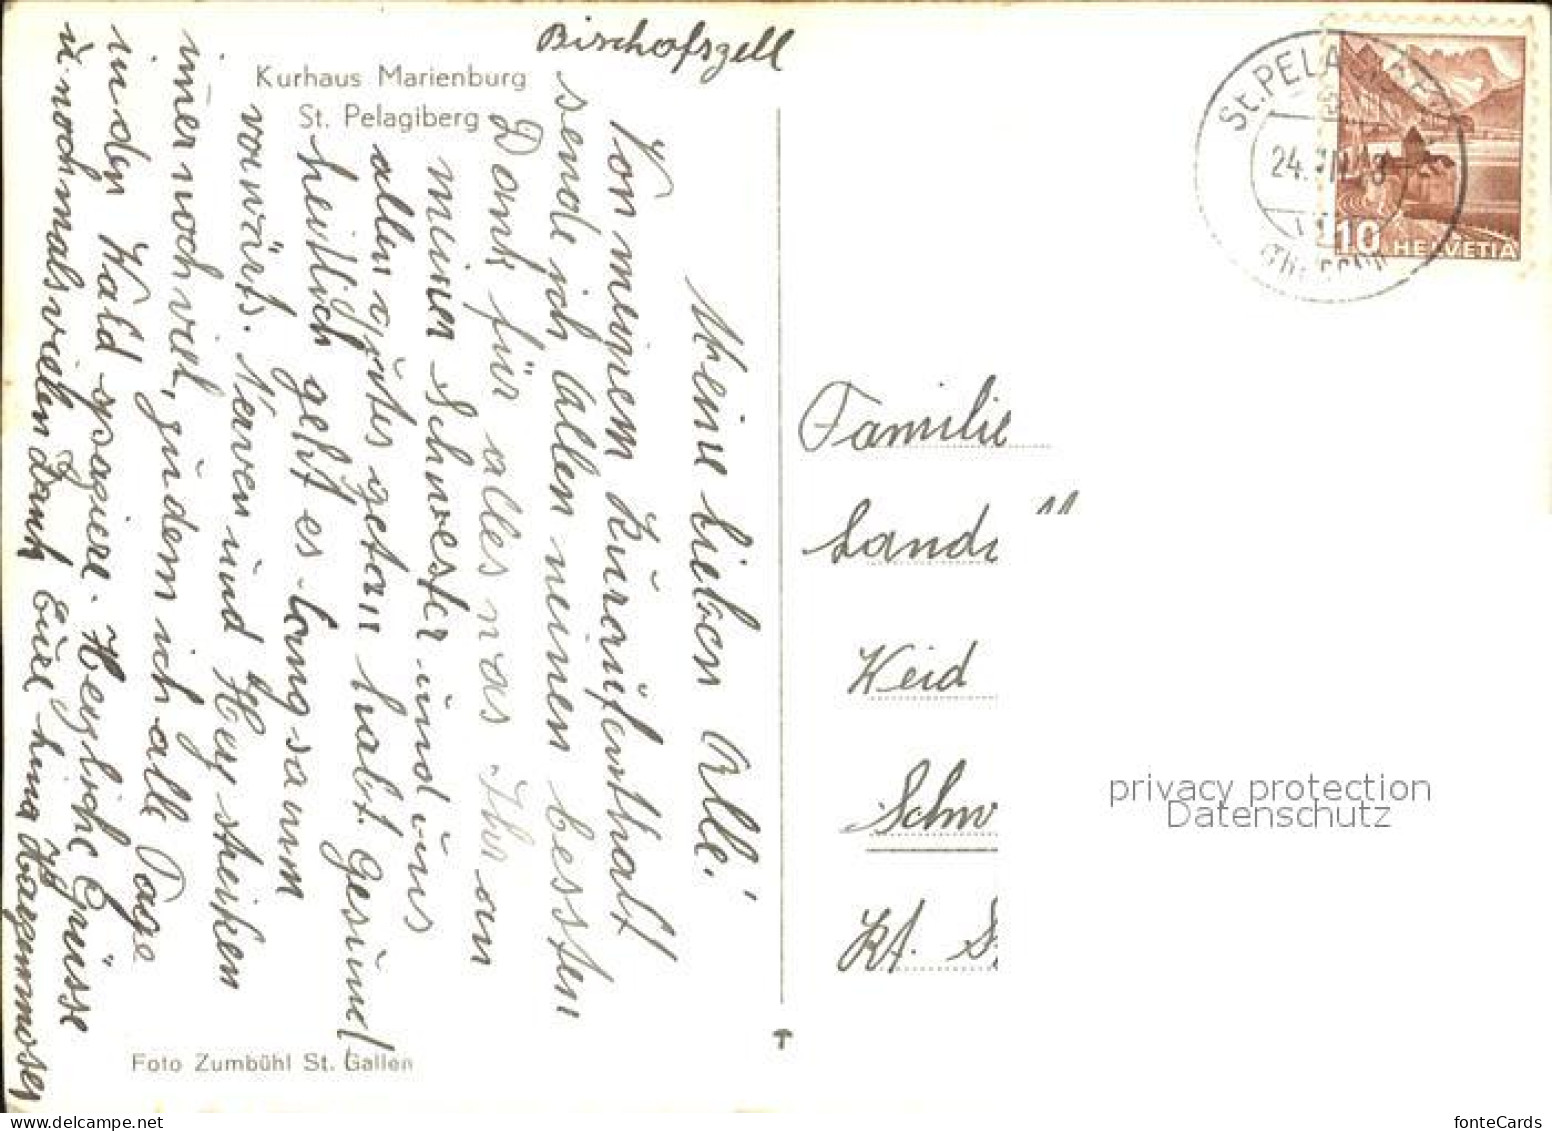 Bischofszell
Kurhaus Marienburg
St. Pelagiberg
Meine lieben Alle!
Von meinem Kuraufenthalt
sende ich allen meinen besten
Dank für alles was Ihr an
meiner Schwester und uns
allen gutes getan habt. Gesund
heitlich geht es langsam
vorwärts. Nerven und Herz streiken
imer noch viel, zudem ich alle Tage
in den Wald spaziere. Herzliche Grüsse
u. nochmals vielen Dank Eure
Foto Zumbühl St. Gallen
St. PELAGIBERG
24.
10 HELVETIA
Familie
Kt.
privacy protection
Datenschutz
fonteCards